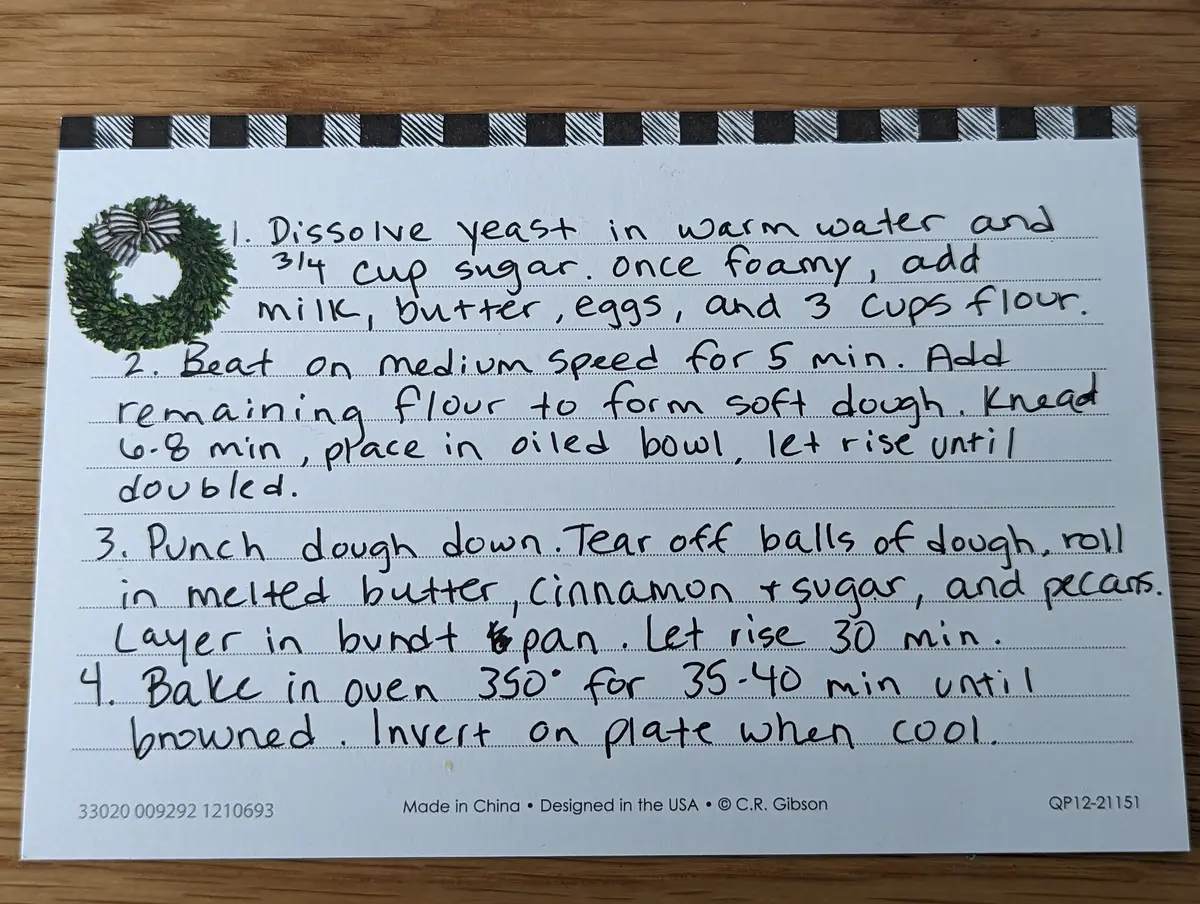 1. Dissolve yeast in warm water and
3/4 cup sugar. Once foamy, add
milk, butter, eggs, and 3 cups flour.
2. Beat on medium speed for 5 min. Add
remaining flour to form soft dough. Knead
6-8 min, place in oiled bowl, let rise until
doubled.
3. Punch dough down. Tear off balls of dough, roll
in melted butter, cinnamon + sugar, and pecans.
Layer in bundt pan. Let rise 30 min.
4. Bake in oven 350° for 35-40 min until
browned. Invert on plate when cool.
33020 009292 1210693
Made in China • Designed in the USA • © C.R. Gibson
QP12-21151